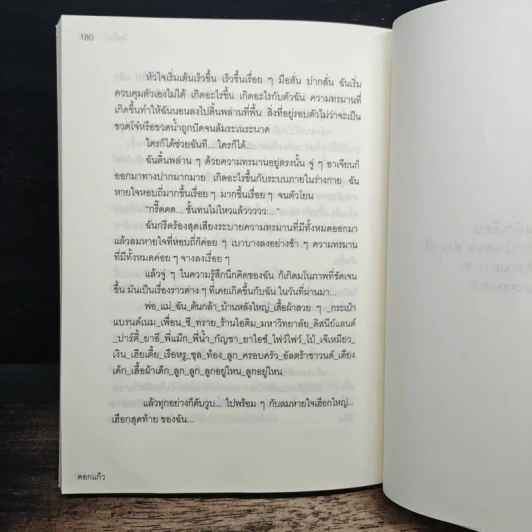 180
หัวใจเริ่มเต้นเร็วขึ้น เร็วขึ้นเรื่อย ๆ มือสั่น ปากสั่น ฉันเริ่ม
ควบคุมตัวเองไม่ได้ เกิดอะไรขึ้น เกิดอะไรกับตัวฉัน ความทรมานที่
เกิดขึ้นทำให้ฉันนอนลงไปดิ้นพล่านที่พื้น สิ่งที่อยู่รอบตัวไม่ว่าจะเป็น
ขวดโจ่หรือขวดน้ำถูกปัดจนล้มระเนระนาด
ใครก็ได้ช่วยฉันที... ใครก็ได้...
ฉันดิ้นพล่าน ๆ ด้วยความทรมานอยู่ตรงนั้น จู่ ๆ อาเจียนก็
ออกมาทางปากมากมาย เกิดอะไรขึ้นกับระบบภายในร่างกาย ฉัน
หายใจหอบถี่มากขึ้นเรื่อย ๆ มากขึ้นเรื่อย ๆ จนตัวโยน
"กรี๊ดดด... ชั้นทนไม่ไหวแล้ววววว..."
ฉันกรีดร้องสุดเสียงระบายความทรมานที่มีทั้งหมดออกมา
แล้วลมหายใจที่หอบถี่ก็ค่อย ๆ เบาบางลงอย่างช้า ๆ ความทรมาน
ที่มีทั้งหมดค่อย ๆ จางลงเรื่อย ๆ
แล้วจู่ ๆ ในความรู้สึกนึกคิดของฉัน ก็เกิดมโนภาพที่ชัดเจน
ขึ้น มันเป็นเรื่องราวต่าง ๆ ที่เคยเกิดขึ้นกับฉัน ในวันที่ผ่านมา...
พ่อ_แม่_ฉัน_ต้นกล้า_บ้านหลังใหญ่_เสื้อผ้าสวย ๆ _กระเป๋า
แบรนด์เนม_เพื่อน_ซี_ทราย_ร้านไอติม_มหาวิทยาลัย_ดิสนีย์แลนด์
_ปาร์ตี้_ยาอี_พี่แม็ก_พี่น้ำ_กัญชา_ยาไอซ์_ไฟว์ไฟว์_โป้_เจ๊เหมียว_
เงิน_เฮียเตี้ย_เรือหรู_ชุล_ท้อง_ลูก_ครอบครัว_อัลตร้าซาวนด์_เตียง
เด็ก_เสื้อผ้าเด็ก_ลูก_ลูก_ลูกอยู่ไหน_ลูกอยู่ไหน
แล้วทุกอย่างก็ดับวูบ... ไปพร้อม ๆ กับลมหายใจเฮือกใหญ่...
เฮือกสุดท้าย ของฉัน...
ดอกแก้ว